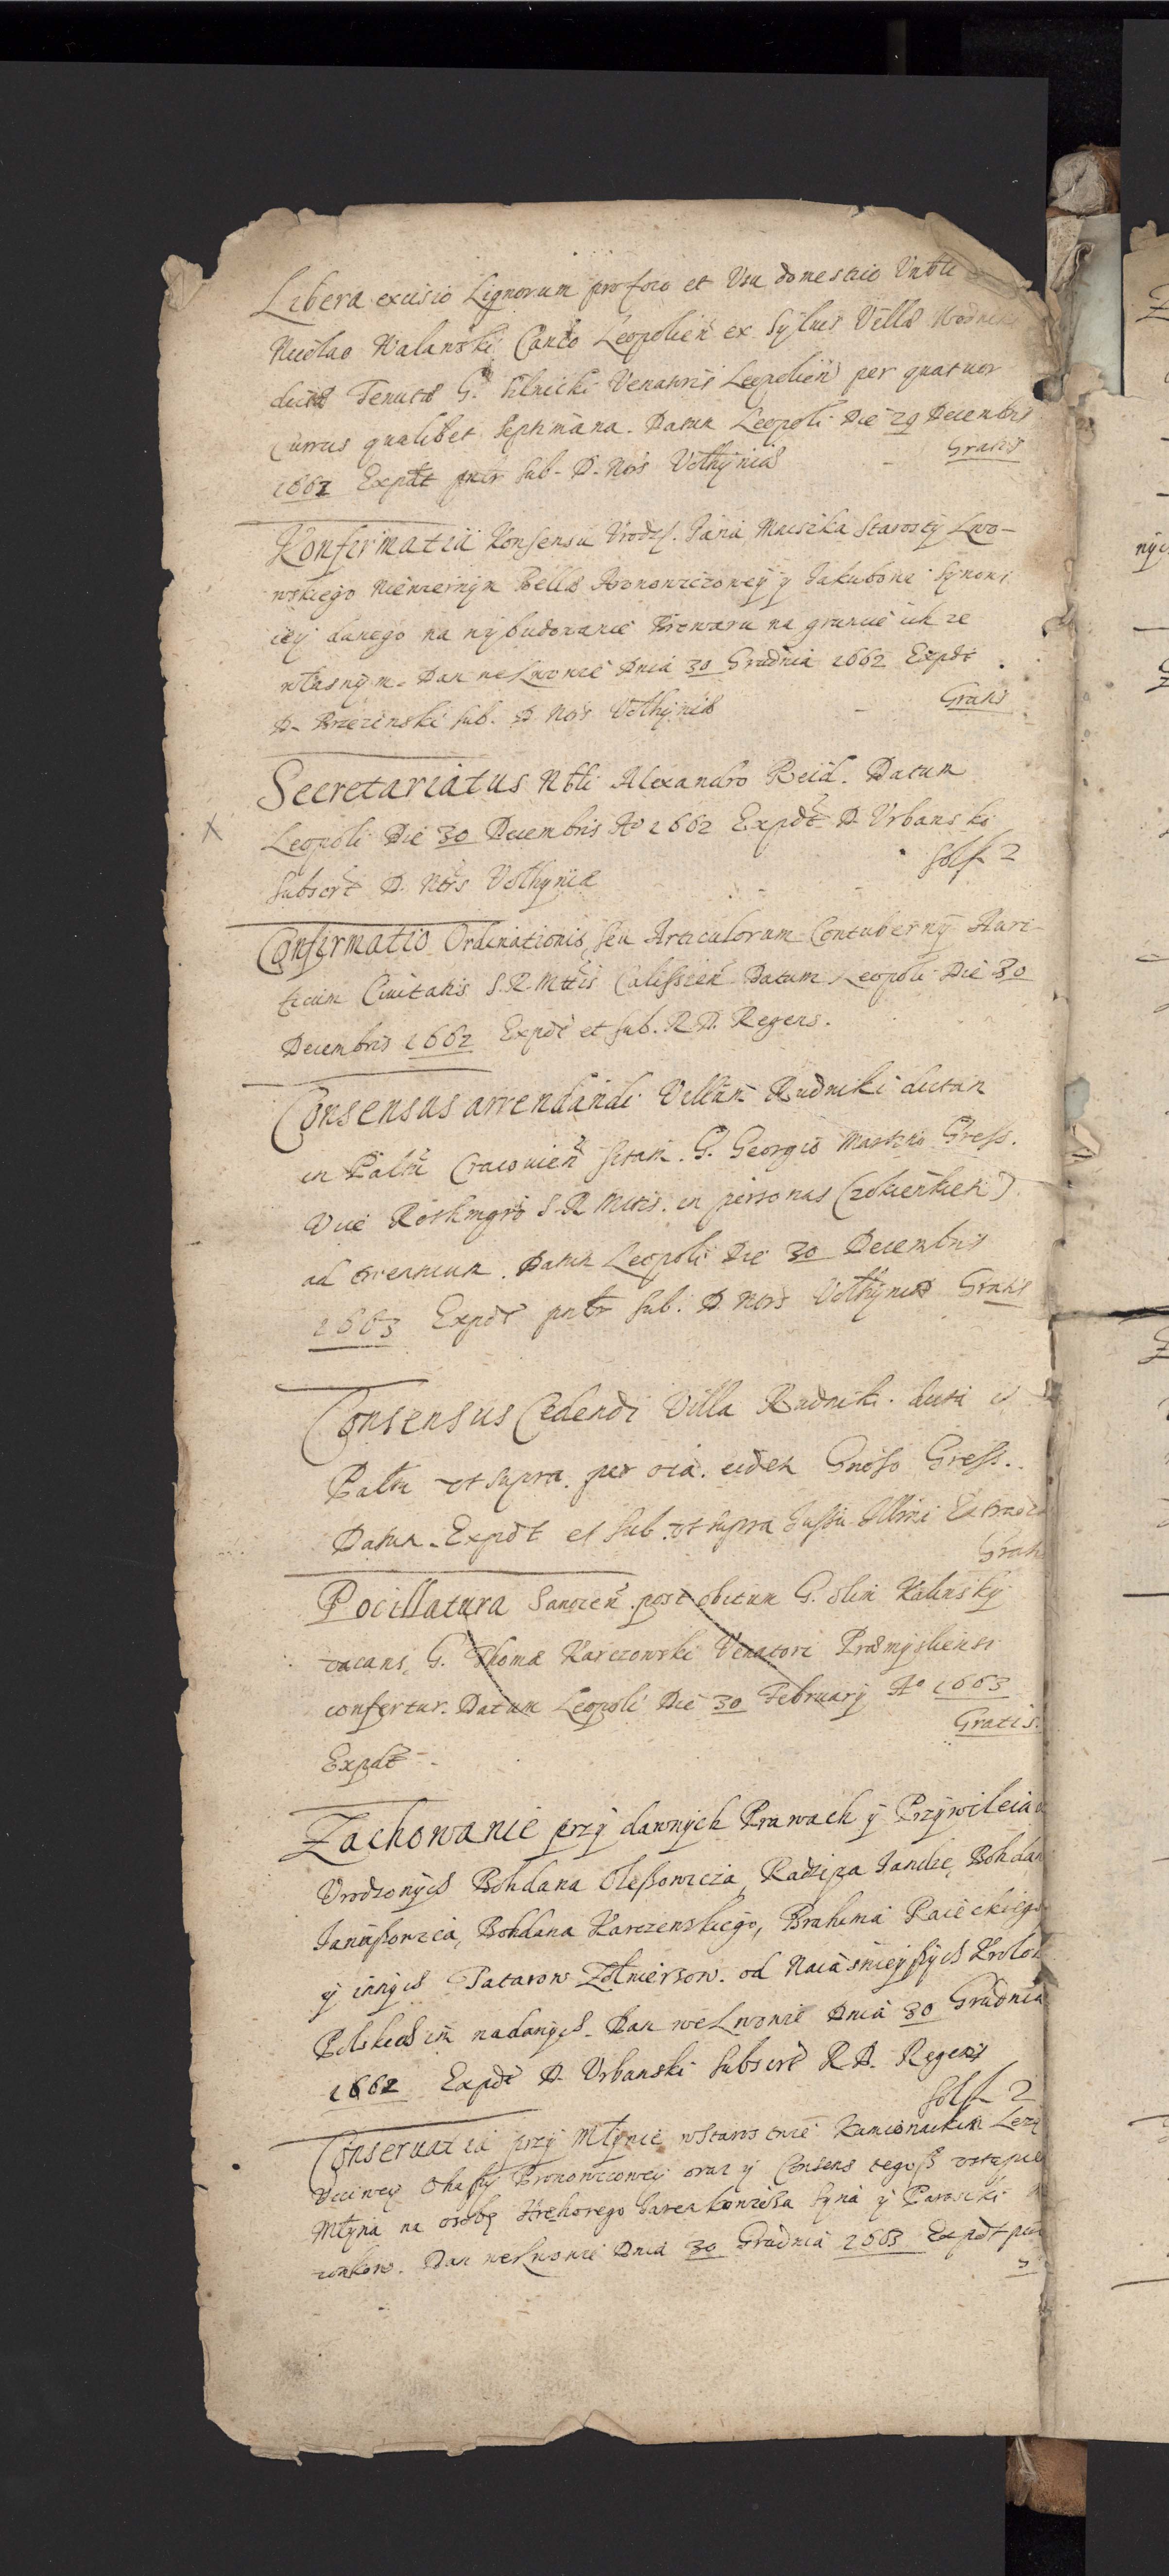 Libera excisio Lignorum pro foco et Usu domestico Vnbli
Nicolao Walanski Canco Leopolien ex Sylvis Villæ
dictæ Tenutæ G. Silnicki Venatoris Leopolien per quatuor
Currus qualibet Septimana. Datum Leopoli Die 29 Decembris
1662 Expdt pntr sub. D. Nors Volhyniæ Gratis
Konfirmatia Konsensu Urodz. Jana Mniszka Starosty Lwo-
wskiego Niewiernym Belle Aronowiczowey y Jakubowi Synowi
iey danego na wybudowanie Browaru na gruncie ich ze
własnym. Dan we Lwowie Dnia 30 Grudnia 1662 Expdt
D. Brzezinski sub. D. Nors Volhyniæ Gratis
Secretariatus Nbli Alexandro Reid. Datum
X Leopoli Die 30 Decembris Ao 1662 Expdt D. Urbanski
Subscrt D. Ntrs Volhyniæ Solf 2
Confirmatio Ordinationis seu Articulorum Contubernÿ Auri-
ficum Civitatis S.R. Mttis Calissien Datum Leopoli Die 30
Decembris 1662 Expdt et sub. R.D. Regens.
Consensus arrendandi Villam Rudniki dictam
in Paltu Cracovien sitam. G. Georgio Martino Gress.
Vice Rothmgro S.R. Mttis. in personas
ad Datum Leopoli Die 30 Decembris
1663 Expdt pntr sub. D. Ntrs Volhyniæ Gratis
Consensus Cedendi Villa Rudniki dicta in
Paltu ut supra per oia. eidem Gnoso Gress.
Datum. Expdt et sub. ut supra Jussu Illmi
Pocillatura Sanocen post obitum G. olim Kalinsky
vacans, G. Thomæ Karczowski Venatori Præmysliensi
confertur. Datum Leopoli Die 30 Februarÿ Ao 1663
Expdt Gratis.
Zachowanie przy dawnych Prawach y Przywileia
Urodzonych Bohdana Oleszowicza, Radzipa Jandze, Bohdan
Januszowica, Bohdana Karczenskiego, Brahima Raieckiego
y innych Tatarow Żołnierzow. od Naiasnieyszych Krolow
Polskich im nadanych. Dan we Lwowie Dnia 30 Grudnia
1662 Expdt D. Urbanski Subscrt R.D. Regens
Solf 2
Conservatia przy Młynie w Starostwie
Vcciwey Bronowicowey oraz y Consens tegoß
Młyna na osobę Hrehorego Syna y Paraski
Dan we Lwowie Dnia 30 Grudnia 1663 Expdt